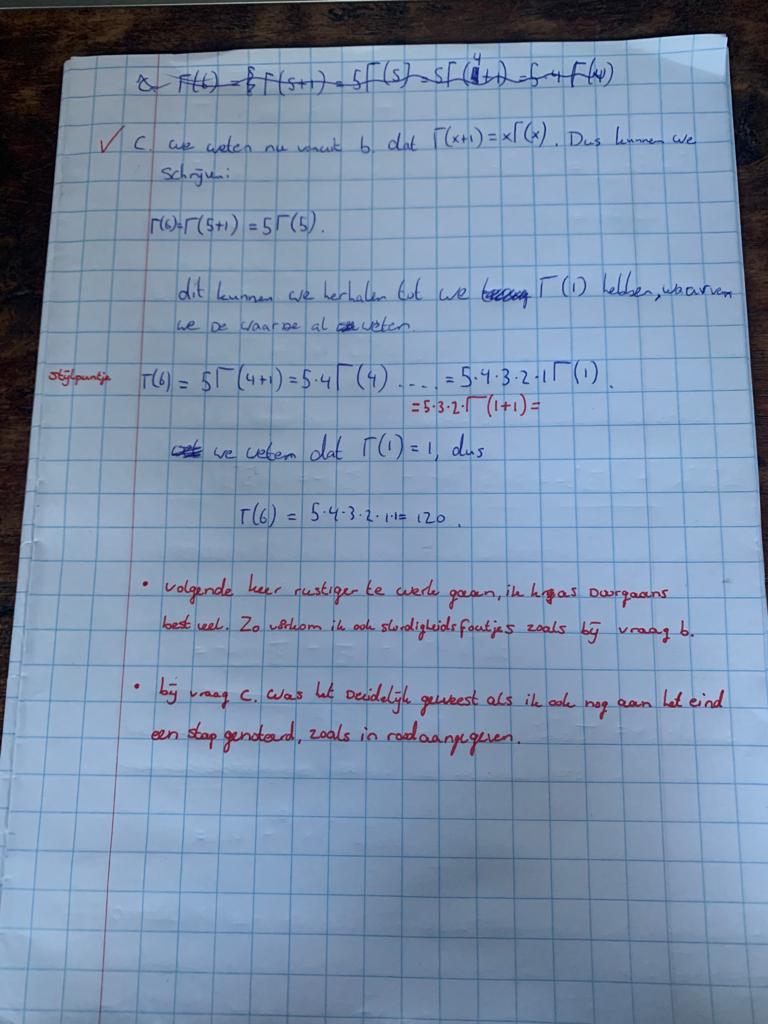 Γ(6) = Γ(5+1) = 5Γ(5) = 5Γ(4+1) = 5·4 Γ(4)
c. we weten nu vanuit b. dat Γ(x+1) = xΓ(x). Dus kunnen we
schrijven:
Γ(6)=Γ(5+1) = 5Γ(5).
dit kunnen we herhalen tot we Γ(1) hebben, waarvan
we de waarde al weten.
stijlpuntje Γ(6) = 5Γ(4+1) = 5·4Γ(4) .... = 5·4·3·2·1Γ(1).
=5·3·2·Γ(1+1)=
we weten dat Γ(1) = 1, dus
Γ(6) = 5·4·3·2·1·1= 120.
• volgende keer rustiger te werk gaan, ik kras doorgaans
best veel. Zo voorkom ik ook slordigheidsfoutjes zoals bij vraag b.
• bij vraag c. was het duidelijk geweest als ik ook nog aan het eind
een stap genoteerd, zoals in rood aangegeven.